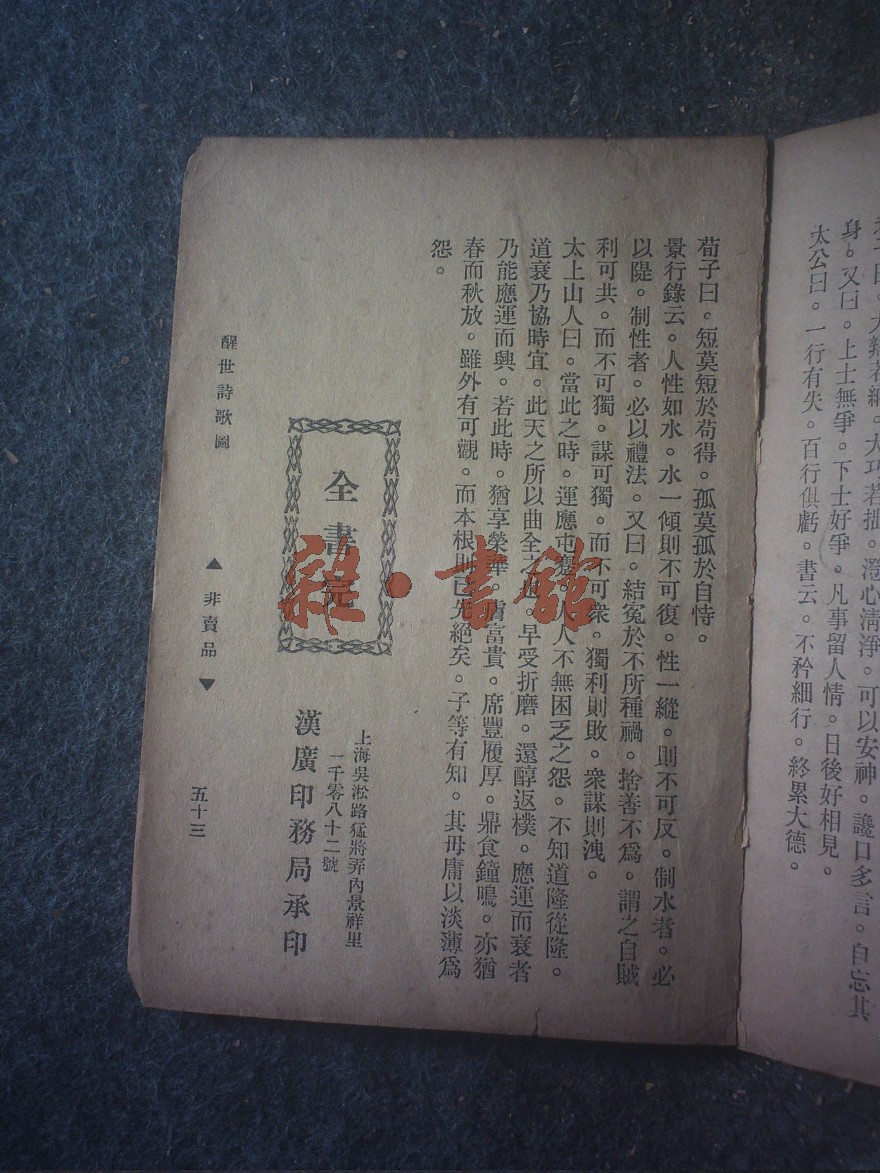 身。又曰。上士無爭。下士好爭。凡事留人情。日後好相見。
太公曰。一行有失。百行俱虧。書云。不矜細行。終累大德。
荀子曰。短莫短於苟得。孤莫孤於自恃。
景行錄云。人性如水。水一傾則不可復。性一縱。則不可反。制水者。必
以隄。制性者。必以禮法。又曰。結冤於不所種禍。捨善不爲。謂之自賊
利可共。而不可獨。謀可獨。而不可衆。獨利則敗。衆謀則洩。
太上山人曰。當此之時。運應屯蹇。人人不無困乏之怨。不知道隆從隆。
道衰乃協時宜。此天之所以曲全之也。早受折磨。還醇返樸。應運而衰者
乃能應運而興。若此時。猶享榮華。富貴。席豐履厚。鼎食鐘鳴。亦猶
春而秋放。雖外有可觀。而本根則已先絕矣。子等有知。其毋庸以淡薄爲
怨。
全書完
上海吳淞路猛將弄內景祥里
一千零八十二號
漢廣印務局承印
醒世詩歌圖
▲非賣品▼
五十三
雜·書館